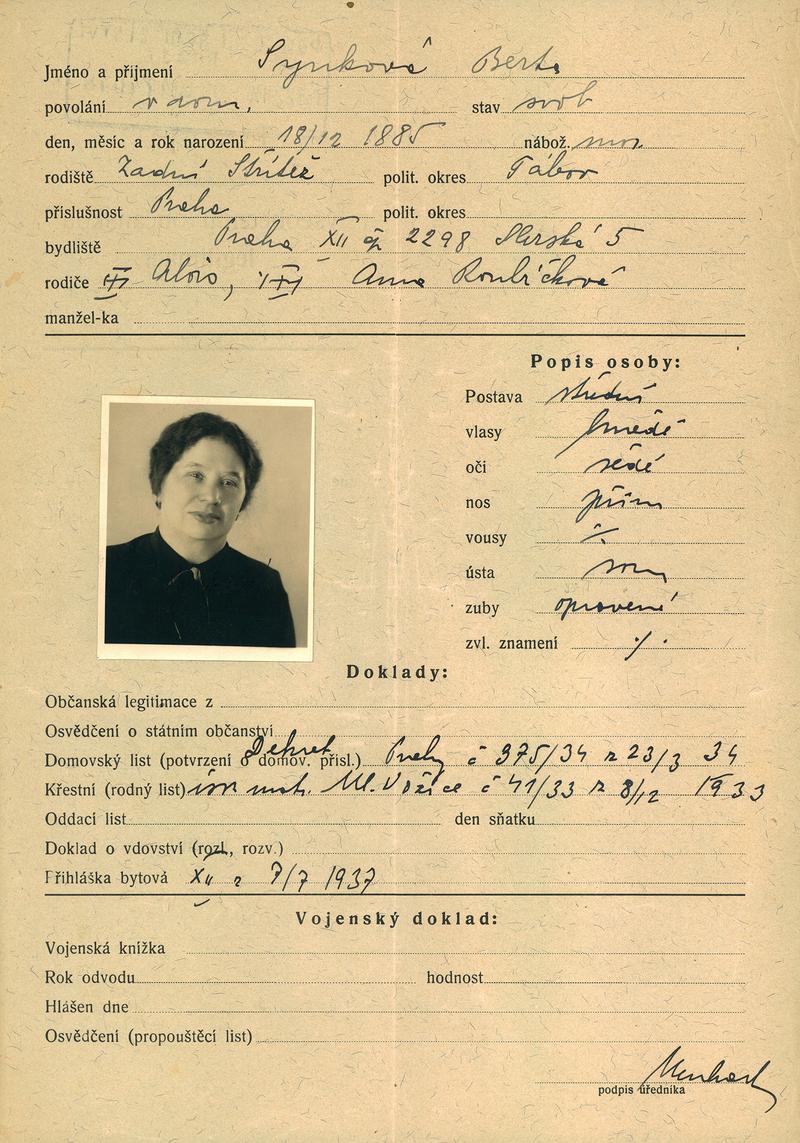 Jméno a příjmení Synková Berta
povolání v dom. stav svob
den, měsíc a rok narození 18/12 1885 nábož. moz
rodiště Zadní Střítež polit. okres Tábor
příslušnost Praha polit. okres
bydliště Praha XII čp 2298 Slezská 5
rodiče Alois, Anna Roubíčková
manžel-ka
Popis osoby:
Postava střední
vlasy hnědé
oči šedé
nos přím
vousy ./.
ústa
zuby opravené
zvl. znamení ./.
Doklady:
Občanská legitimace z
Osvědčení o státním občanství
Dekret
Domovský list (potvrzení o domov. přísl.) Prahy č 375/34 z 23/3 34
Křestní (rodný list) isr mat. Ml. Vožice č 41/33 z 8/12 1933
Oddací list den sňatku
Doklad o vdovství (rozl., rozv.)
Přihláška bytová XII z 7/7 1937
Vojenský doklad:
Vojenská knížka
Rok odvodu hodnost
Hlášen dne
Osvědčení (propouštěcí list)
podpis úředníka